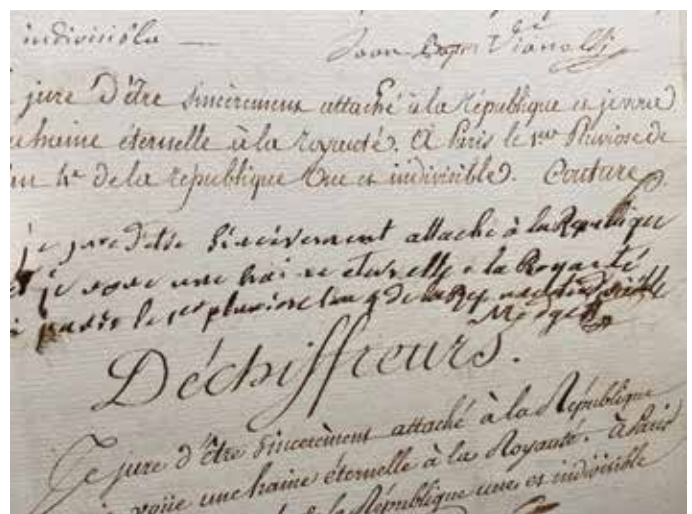 indivisible —
Jean Vignolly
jure d'être sincèrement attaché à la république et je voue
haine éternelle à la royauté. à Paris le 1er Pluviose de
4e de la république une et indivisible. Couture
je jure d'etre sincèrement attaché à la République
et je voue une haine eternelle a la Royauté
à paris le 1er pluviose l'an 4 de la Rep. une et indivisible
Déchiffreurs.
Je jure d'être sincèrement attaché à la République
voüe une haine éternelle à la Royauté. à Paris
de la République une et indivisible